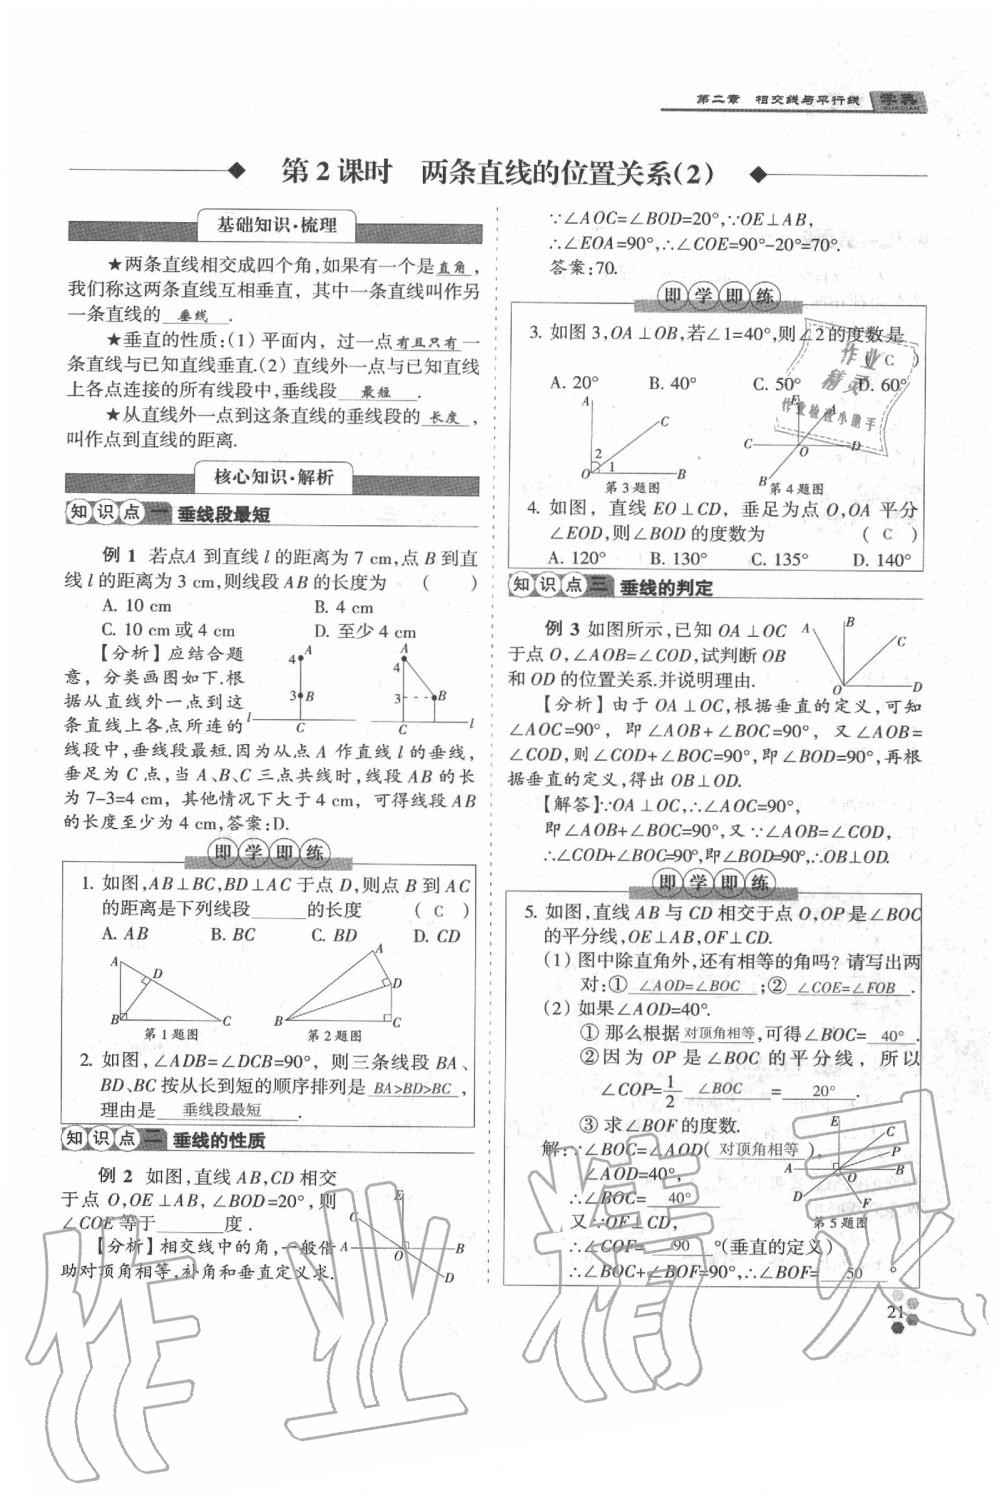 第二章 相交线与平行线 学典
XUEDIAN
第2课时 两条直线的位置关系(2)
基础知识·梳理
★两条直线相交成四个角,如果有一个是直角,
我们称这两条直线互相垂直，其中一条直线叫作另
一条直线的 垂线 .
★垂直的性质:(1) 平面内，过一点有且只有一
条直线与已知直线垂直.(2) 直线外一点与已知直线
上各点连接的所有线段中,垂线段 最短 .
★从直线外一点到这条直线的垂线段的 长度 ,
叫作点到直线的距离.
核心知识·解析
知识点一 垂线段最短
例 1 若点A 到直线 l 的距离为 7 cm,点 B 到直
线 l 的距离为 3 cm,则线段 AB 的长度为 ( )
A. 10 cm B. 4 cm
C. 10 cm 或 4 cm D. 至少 4 cm
【分析】应结合题
意，分类画图如下.根
据从直线外一点到这
条直线上各点所连的
线段中,垂线段最短.因为从点 A 作直线 l 的垂线,
垂足为 C 点,当 A、B、C 三点共线时,线段 AB 的长
为 7-3=4 cm，其他情况下大于 4 cm，可得线段 AB
的长度至少为 4 cm,答案:D.
4 A
3 B
l C
A
4
3 B
C l
即学即练
1. 如图,AB⊥BC,BD⊥AC 于点 D,则点 B 到 AC
的距离是下列线段 的长度 ( C )
A. AB B. BC C. BD D. CD
A D B C
第 1 题图
A D B C
第 2 题图
2. 如图,∠ADB=∠DCB=90°，则三条线段 BA、
BD、BC 按从长到短的顺序排列是 BA>BD>BC ,
理由是 垂线段最短 .
知识点二 垂线的性质
例 2 如图,直线 AB,CD 相交
于点 O,OE⊥AB, ∠BOD=20°, 则
∠COE 等于 度 .
【分析】相交线中的角,一般借
助对顶角相等,补角和垂直定义求.
E
C
A O B
D
∵∠AOC=∠BOD=20°,∵OE⊥AB,
∴∠EOA=90°,∴∠COE=90°-20°=70°.
答案:70.
即学即练
3. 如图 3,OA⊥OB,若∠1=40°,则∠2的度数是
( C )
A. 20° B. 40° C. 50° D. 60°
A
C
2
1
O B
第 3 题图
E A
C O D
B
第 4 题图
作业
精灵
作业检查小助手
4. 如图，直线 EO⊥CD，垂足为点 O,OA 平分
∠EOD,则∠BOD 的度数为 ( C )
A. 120° B. 130° C. 135° D. 140°
知识点三 垂线的判定
例 3 如图所示,已知 OA⊥OC
于点 O,∠AOB=∠COD,试判断 OB
和 OD 的位置关系.并说明理由.
A B C
O D
【分析】由于 OA⊥OC,根据垂直的定义,可知
∠AOC=90°，即∠AOB+∠BOC=90°，又∠AOB=
∠COD,则∠COD+∠BOC=90°,即∠BOD=90°,再根
据垂直的定义,得出 OB⊥OD.
【解答】∵OA⊥OC,∴∠AOC=90°,
即∠AOB+∠BOC=90°,又∵∠AOB=∠COD,
∴∠COD+∠BOC=90°,即∠BOD=90°,∴OB⊥OD.
即学即练
5. 如图,直线 AB 与 CD 相交于点 O,OP 是∠BOC
的平分线,OE⊥AB,OF⊥CD.
(1) 图中除直角外,还有相等的角吗? 请写出两
对:① ∠AOD=∠BOC ;② ∠COE=∠FOB .
(2) 如果∠AOD=40°.
① 那么根据 对顶角相等,可得∠BOC= 40° .
②因为 OP 是∠BOC 的平分线，所以
∠COP=1/2 ∠BOC = 20° .
③ 求∠BOF 的度数.
解:∵∠BOC=∠AOD( 对顶角相等 ),
∠AOD=40°,
∴∠BOC= 40°
又∵OF⊥CD,
∴∠COF= 90 °(垂直的定义)
∴∠BOC+∠BOF=90°,∴∠BOF= 50 °
E C P
A O B
D F
第 5 题图
作业精灵
21